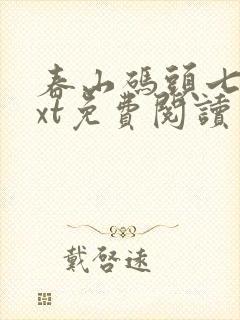 春山碼頭七
xt免費閱讀
戴啓遠